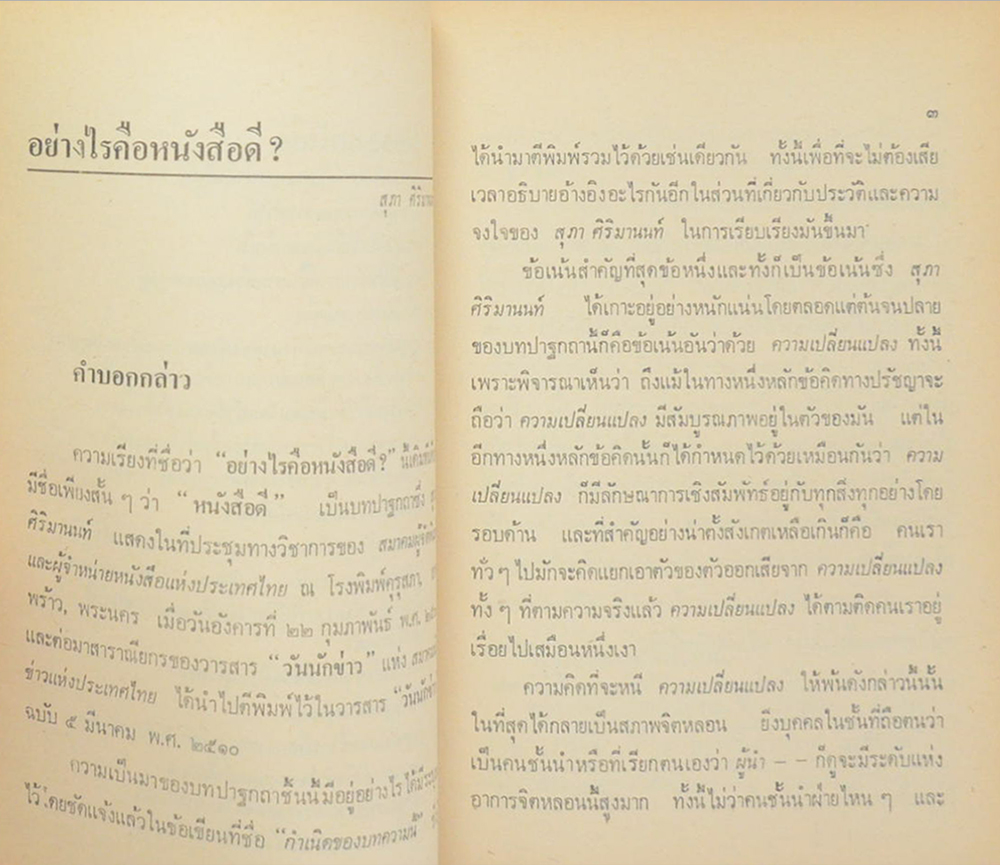 อย่างไรคือหนังสือดี ?
สุภา ศิริมา
คำบอกกล่าว
ความเรียงที่ชื่อว่า “อย่างไรคือหนังสือดี ?” นี้เดิม
มีชื่อเพียงสั้น ๆ ว่า “หนังสือดี” เป็นบทปาฐกถาซึ่ง
ศิริมานนท์ แสดงในที่ประชุมทางวิชาการของ สมาคมผู้จัด
และผู้จำหน่ายหนังสือแห่งประเทศไทย ณ โรงพิมพ์คุรุสภา,
พร้าว, พระนคร เมื่อวันอังคารที่ ๒๒ กุมภาพันธ์ พ.ศ.
และต่อมาสาราณียกรของวารสาร “วันนักข่าว” แห่ง
ข่าวแห่งประเทศไทย ได้นำไปตีพิมพ์ไว้ในวารสาร “วันนักข่าว
ฉบับ ๕ มีนาคม พ.ศ. ๒๕๑๐
ความเป็นมาของบทปาฐกถาชิ้นนี้มีอยู่อย่างไร ได้มี
ไว้โดยชัดแจ้งแล้วในข้อเขียนที่ชื่อ “กำเนิดของบทความนี้”
๓
ได้นำมาตีพิมพ์รวมไว้ด้วยเช่นเดียวกัน ทั้งนี้เพื่อที่จะไม่ต้องเสีย
เวลาอธิบายอ้างอิงอะไรกันอีกในส่วนที่เกี่ยวกับประวัติและความ
จงใจของ สุภา ศิริมานนท์ ในการเรียบเรียงมันขึ้นมา
ข้อเน้นสำคัญที่สุดข้อหนึ่งและทั้งก็เป็นข้อเน้นซึ่ง สุภา
ศิริมานนท์ ได้เกาะอยู่อย่างหนักแน่นโดยตลอดแต่ต้นจนปลาย
ของบทปาฐกถานี้ก็คือข้อเน้นอันว่าด้วย ความเปลี่ยนแปลง ทั้งนี้
เพราะพิจารณาเห็นว่า ถึงแม้ในทางหนึ่งหลักข้อคิดทางปรัชญาจะ
ถือว่า ความเปลี่ยนแปลง มีสัมบูรณภาพอยู่ในตัวของมัน แต่ใน
อีกทางหนึ่งหลักข้อคิดนั้นก็ได้กำหนดไว้ด้วยเหมือนกันว่า ความ
เปลี่ยนแปลง ก็มีลักษณาการเชิงสัมพัทธ์อยู่กับทุกสิ่งทุกอย่างโดย
รอบด้าน และที่สำคัญอย่างน่าตั้งสังเกตเหลือเกินก็คือ คนเรา
ทั่ว ๆ ไปมักจะคิดแยกเอาตัวของตัวออกเสียจาก ความเปลี่ยนแปลง
ทั้ง ๆ ที่ตามความจริงแล้ว ความเปลี่ยนแปลง ได้ตามติดคนเราอยู่
เรื่อยไปเสมือนหนึ่งเงา
ความคิดที่จะหนี ความเปลี่ยนแปลง ให้พ้นดังกล่าวนี้นั้น
ในที่สุดได้กลายเป็นสภาพจิตหลอน ยิ่งบุคคลในชั้นที่ถือตนว่า
เป็นคนชั้นนำหรือที่เรียกตนเองว่า ผู้นำ – – ก็ดูจะมีระดับแห่ง
อาการจิตหลอนนี้สูงมาก ทั้งนี้ไม่ว่าคนชั้นนำฝ่ายไหน ๆ และ